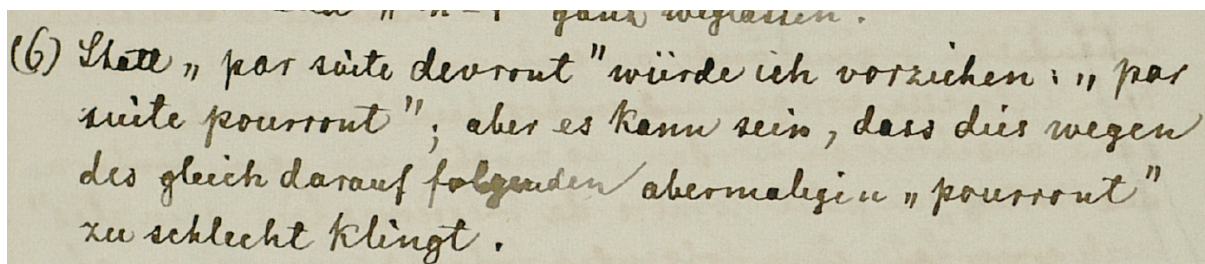 ganz weglassen.
(6) Statt „par suite devront" würde ich vorziehen: „par
suite pourront"; aber es kann sein, dass dies wegen
des gleich darauf folgenden abermaligen „pourront"
zu schlecht klingt.